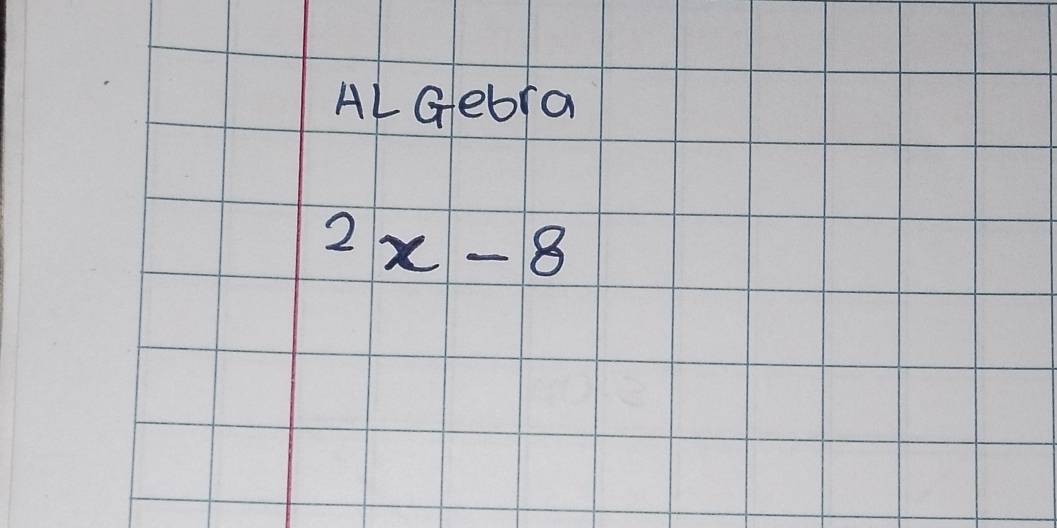 ALGebra
2x - 8